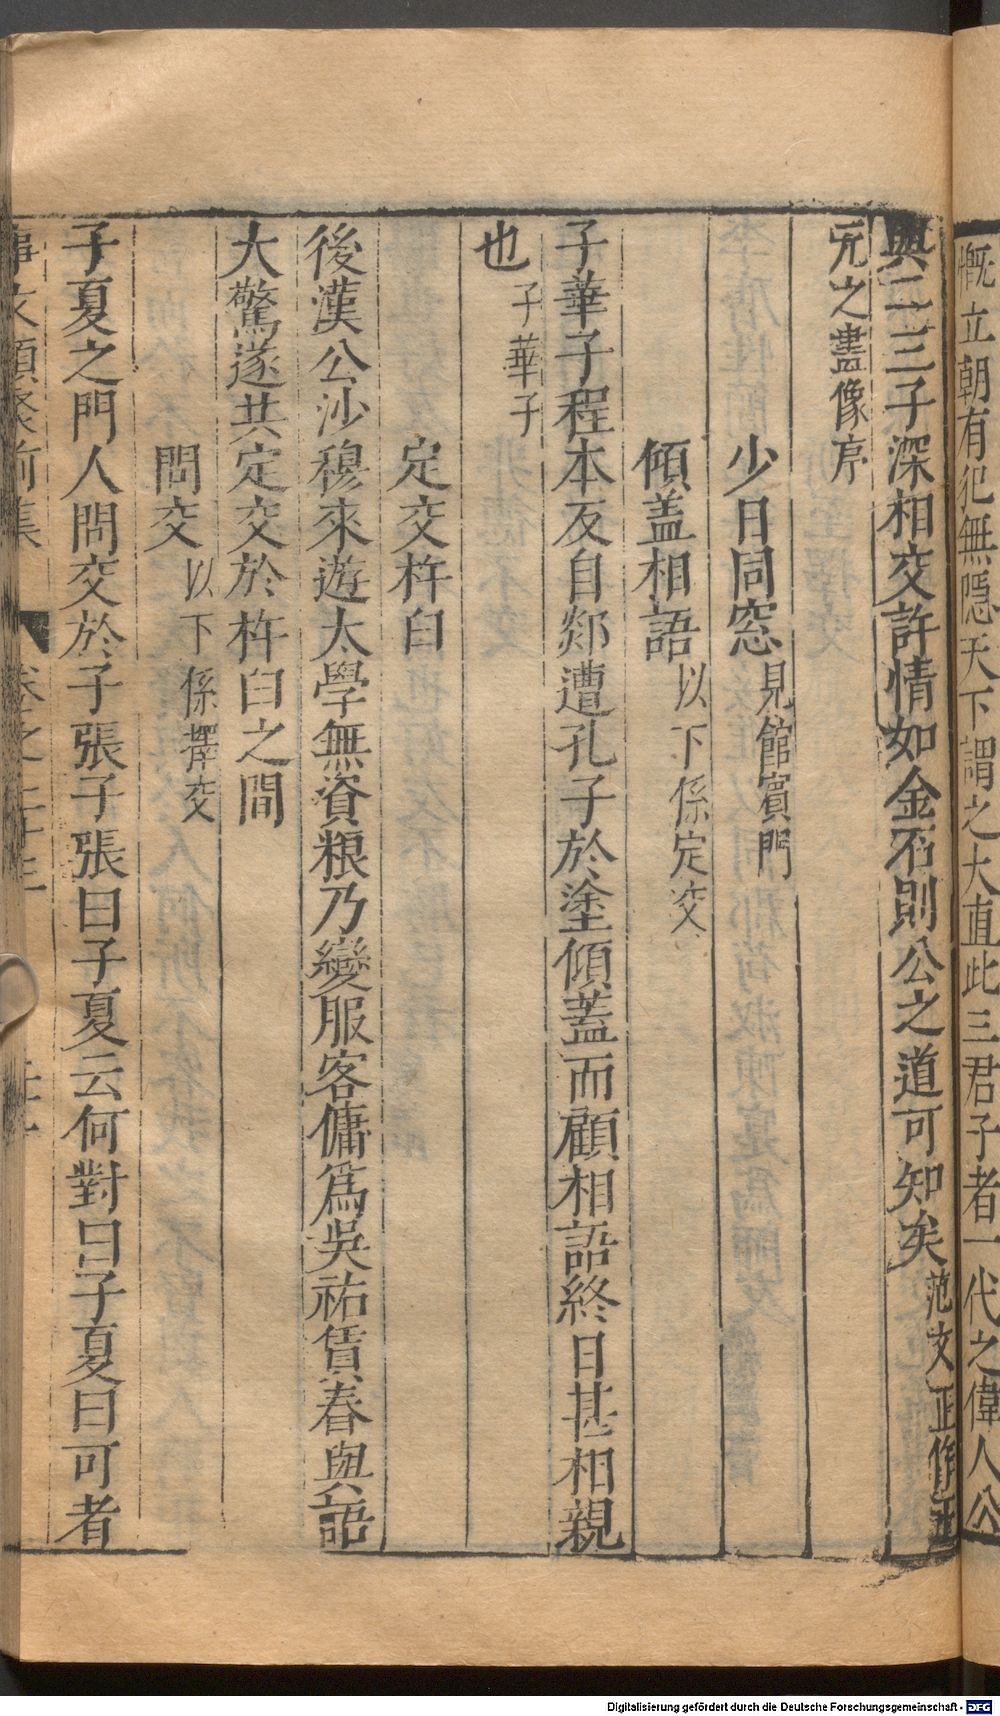 慨立朝有犯無隱天下謂之大直此三君子者一代之偉人公
與二三子深相交許情如金石則公之道可知矣范文正作王
元之畫像序
少日同窓見館賓門
傾盖相語以下係定交
子華子程本反自郯遭孔子於塗傾蓋而顧相語終日甚相親
也子華子
定交杵臼
後漢公沙穆來遊太學無資粮乃變服客傭爲吳祐賃舂與語
大驚遂共定交於杵臼之間
問交以下係擇交
子夏之門人問交於子張子張曰子夏云何對曰子夏曰可者
事文類聚前集 卷之二十三
Digitalisierung gefördert durch die Deutsche Forschungsgemeinschaft - DFG